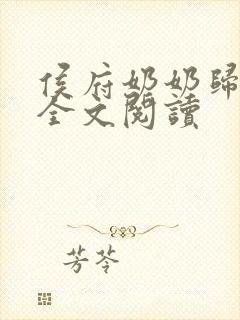 侯府奶奶歸
全文閱讀
芳苓